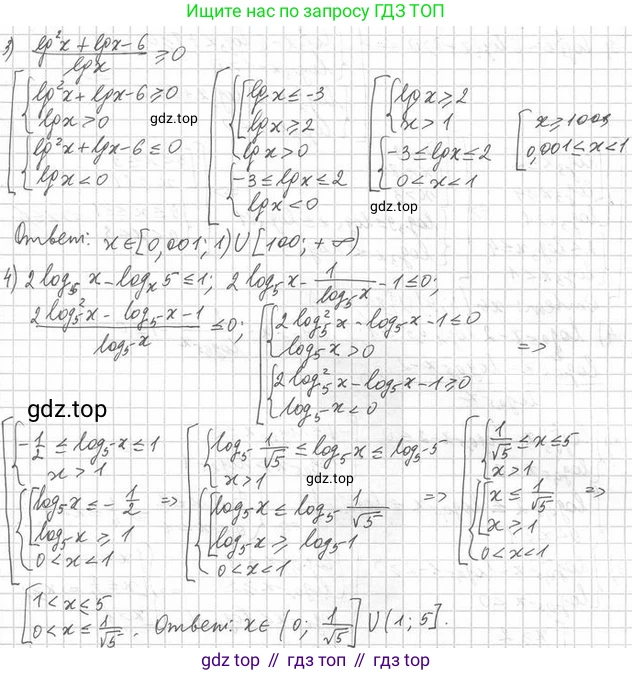 Ищите нас по запросу ГДЗ ТОП
3) (lg²x + lgx - 6)/lgx ≥ 0
[ { lg²x + lgx - 6 ≥ 0; lgx > 0 } { lg²x + lgx - 6 ≤ 0; lgx < 0 }
[ { [ lgx ≤ -3; lgx ≥ 2 ] lgx > 0 } { -3 ≤ lgx ≤ 2; lgx < 0 }
[ { lgx ≥ 2; x > 1 } { -3 ≤ lgx ≤ 2; 0 < x < 1 }
[ x ≥ 100; 0,001 ≤ x < 1
gdz.top
gdz.top
Ответ: x ∈ [0,001; 1) ∪ [100; +∞)
4) 2 log₅ x - logₓ 5 ≤ 1; 2 log₅ x - 1/log₅ x - 1 ≤ 0;
(2 log₅² x - log₅ x - 1)/log₅ x ≤ 0; [ { 2 log₅² x - log₅ x - 1 ≤ 0; log₅ x > 0 } { 2 log₅² x - log₅ x - 1 ≥ 0; log₅ x < 0 } =>
gdz.top
[ { -1/2 ≤ log₅ x ≤ 1; x > 1 } { [ log₅ x ≤ -1/2; log₅ x ≥ 1 ] 0 < x < 1 } =>
[ { log₅ 1/√5 ≤ log₅ x ≤ log₅ 5; x > 1 } { [ log₅ x ≤ log₅ 1/√5; log₅ x ≥ log₅ 1 ] 0 < x < 1 } =>
gdz.top
[ { 1/√5 ≤ x ≤ 5; x > 1 } { [ x ≤ 1/√5; x ≥ 1 ] 0 < x < 1 } =>
[ 1 < x ≤ 5; 0 < x ≤ 1/√5. Ответ: x ∈ (0; 1/√5] ∪ (1; 5].
gdz.top // гдз.топ // gdz.top